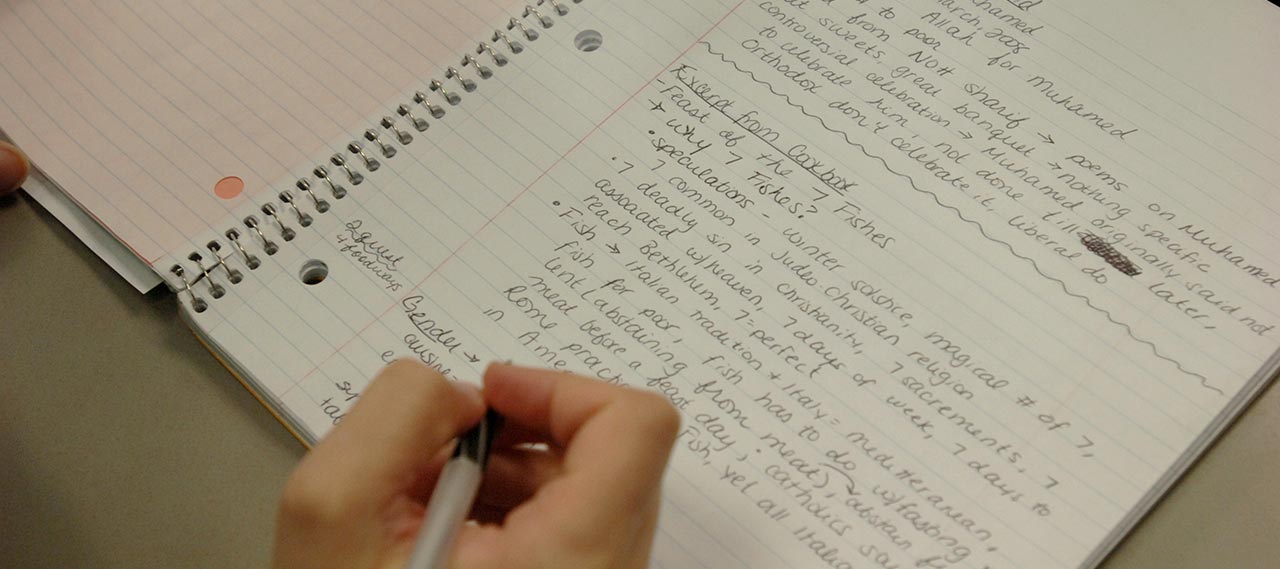 hamed
March 2008
Allah for Muhamed
to poor
from Nott sharif → poems on Muhamed
sweets, great banquet → nothing specific
controversial celebration → Muhamed originally said not
to celebrate him, not done till later,
Orthodox don't celebrate it, liberal do
Excerpt from Cookbook
- Feast of the 7 Fishes
→ why 7 Fishes?
• speculations - winter solstice, magical # of 7,
7 common in Judeo-Christian religion
• 7 deadly sin in christianity, 7 sacrements, 7
associated w/heaven, 7 days of week, 7 days to
reach Bethlehem, 7 = perfect
• Fish → Italian tradition + Italy = mediterranean,
fish for poor, fish has to do w/fasting
lent (abstaining from meat), abstain
meat before a feast day; catholics say
Rome Fish, yet all Italia
in Ame
Gender →
cuisine